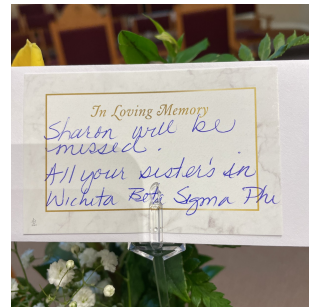 In Loving Memory
Sharon will be
missed.
All your sister's in
Wichita Beta Sigma Phi